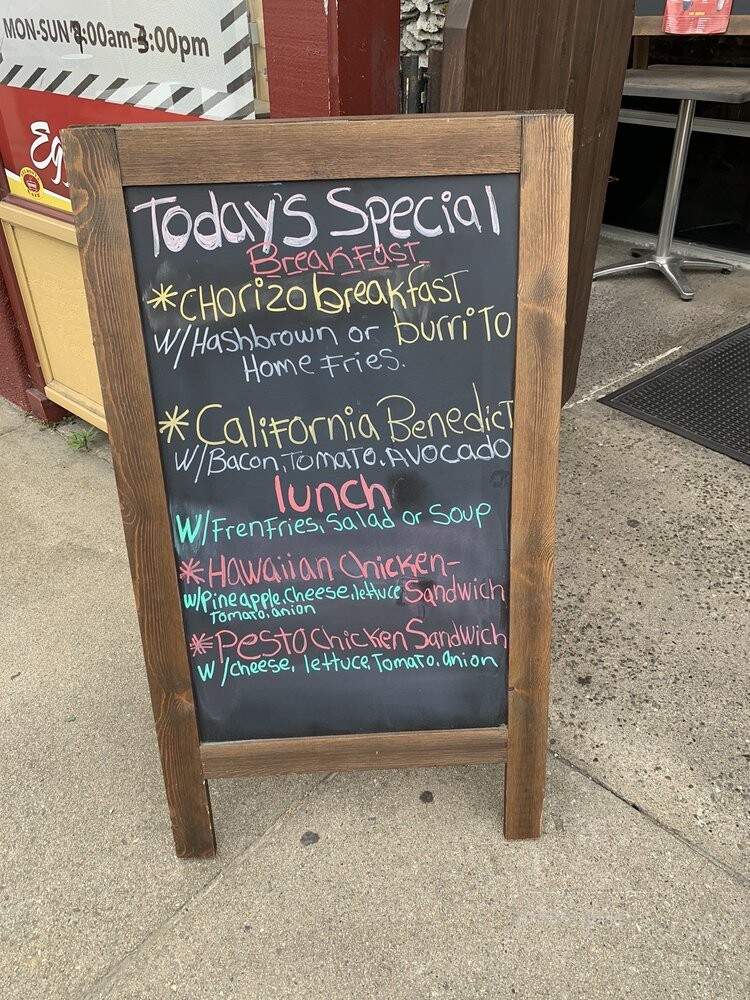 MON-SUN 7:00am-3:00pm
Today's Special
Breakfast
*CHorizo breakfast
W/Hashbrown or burriTo
Home Fries.
*California BenedicT
W/Bacon, TomaTo, Avocado
lunch
W/FrenFries, Salad or Soup
*Hawaiian Chicken-
w/Pineapple, Cheese, lettuce Sandwich
Tomato, onion
*PESTO Chicken Sandwich
W/cheese, lettuce, Tomato, onion